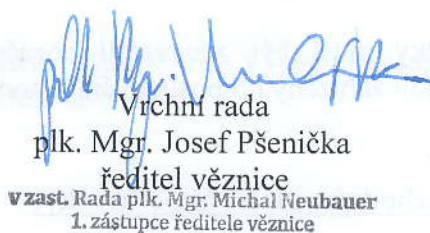 Vrchní rada
plk. Mgr. Josef Pšenička
ředitel věznice
v zast. Rada plk. Mgr. Michal Neubauer
1. zástupce ředitele věznice